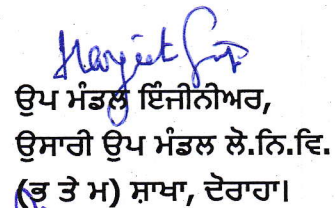 Harjeet Singh
ਉਪ ਮੰਡਲ ਇੰਜੀਨੀਅਰ,
ਉਸਾਰੀ ਉਪ ਮੰਡਲ ਲੋ.ਨਿ.ਵਿ.
(ਭ ਤੇ ਮ) ਸ਼ਾਖਾ, ਦੋਰਾਹਾ।